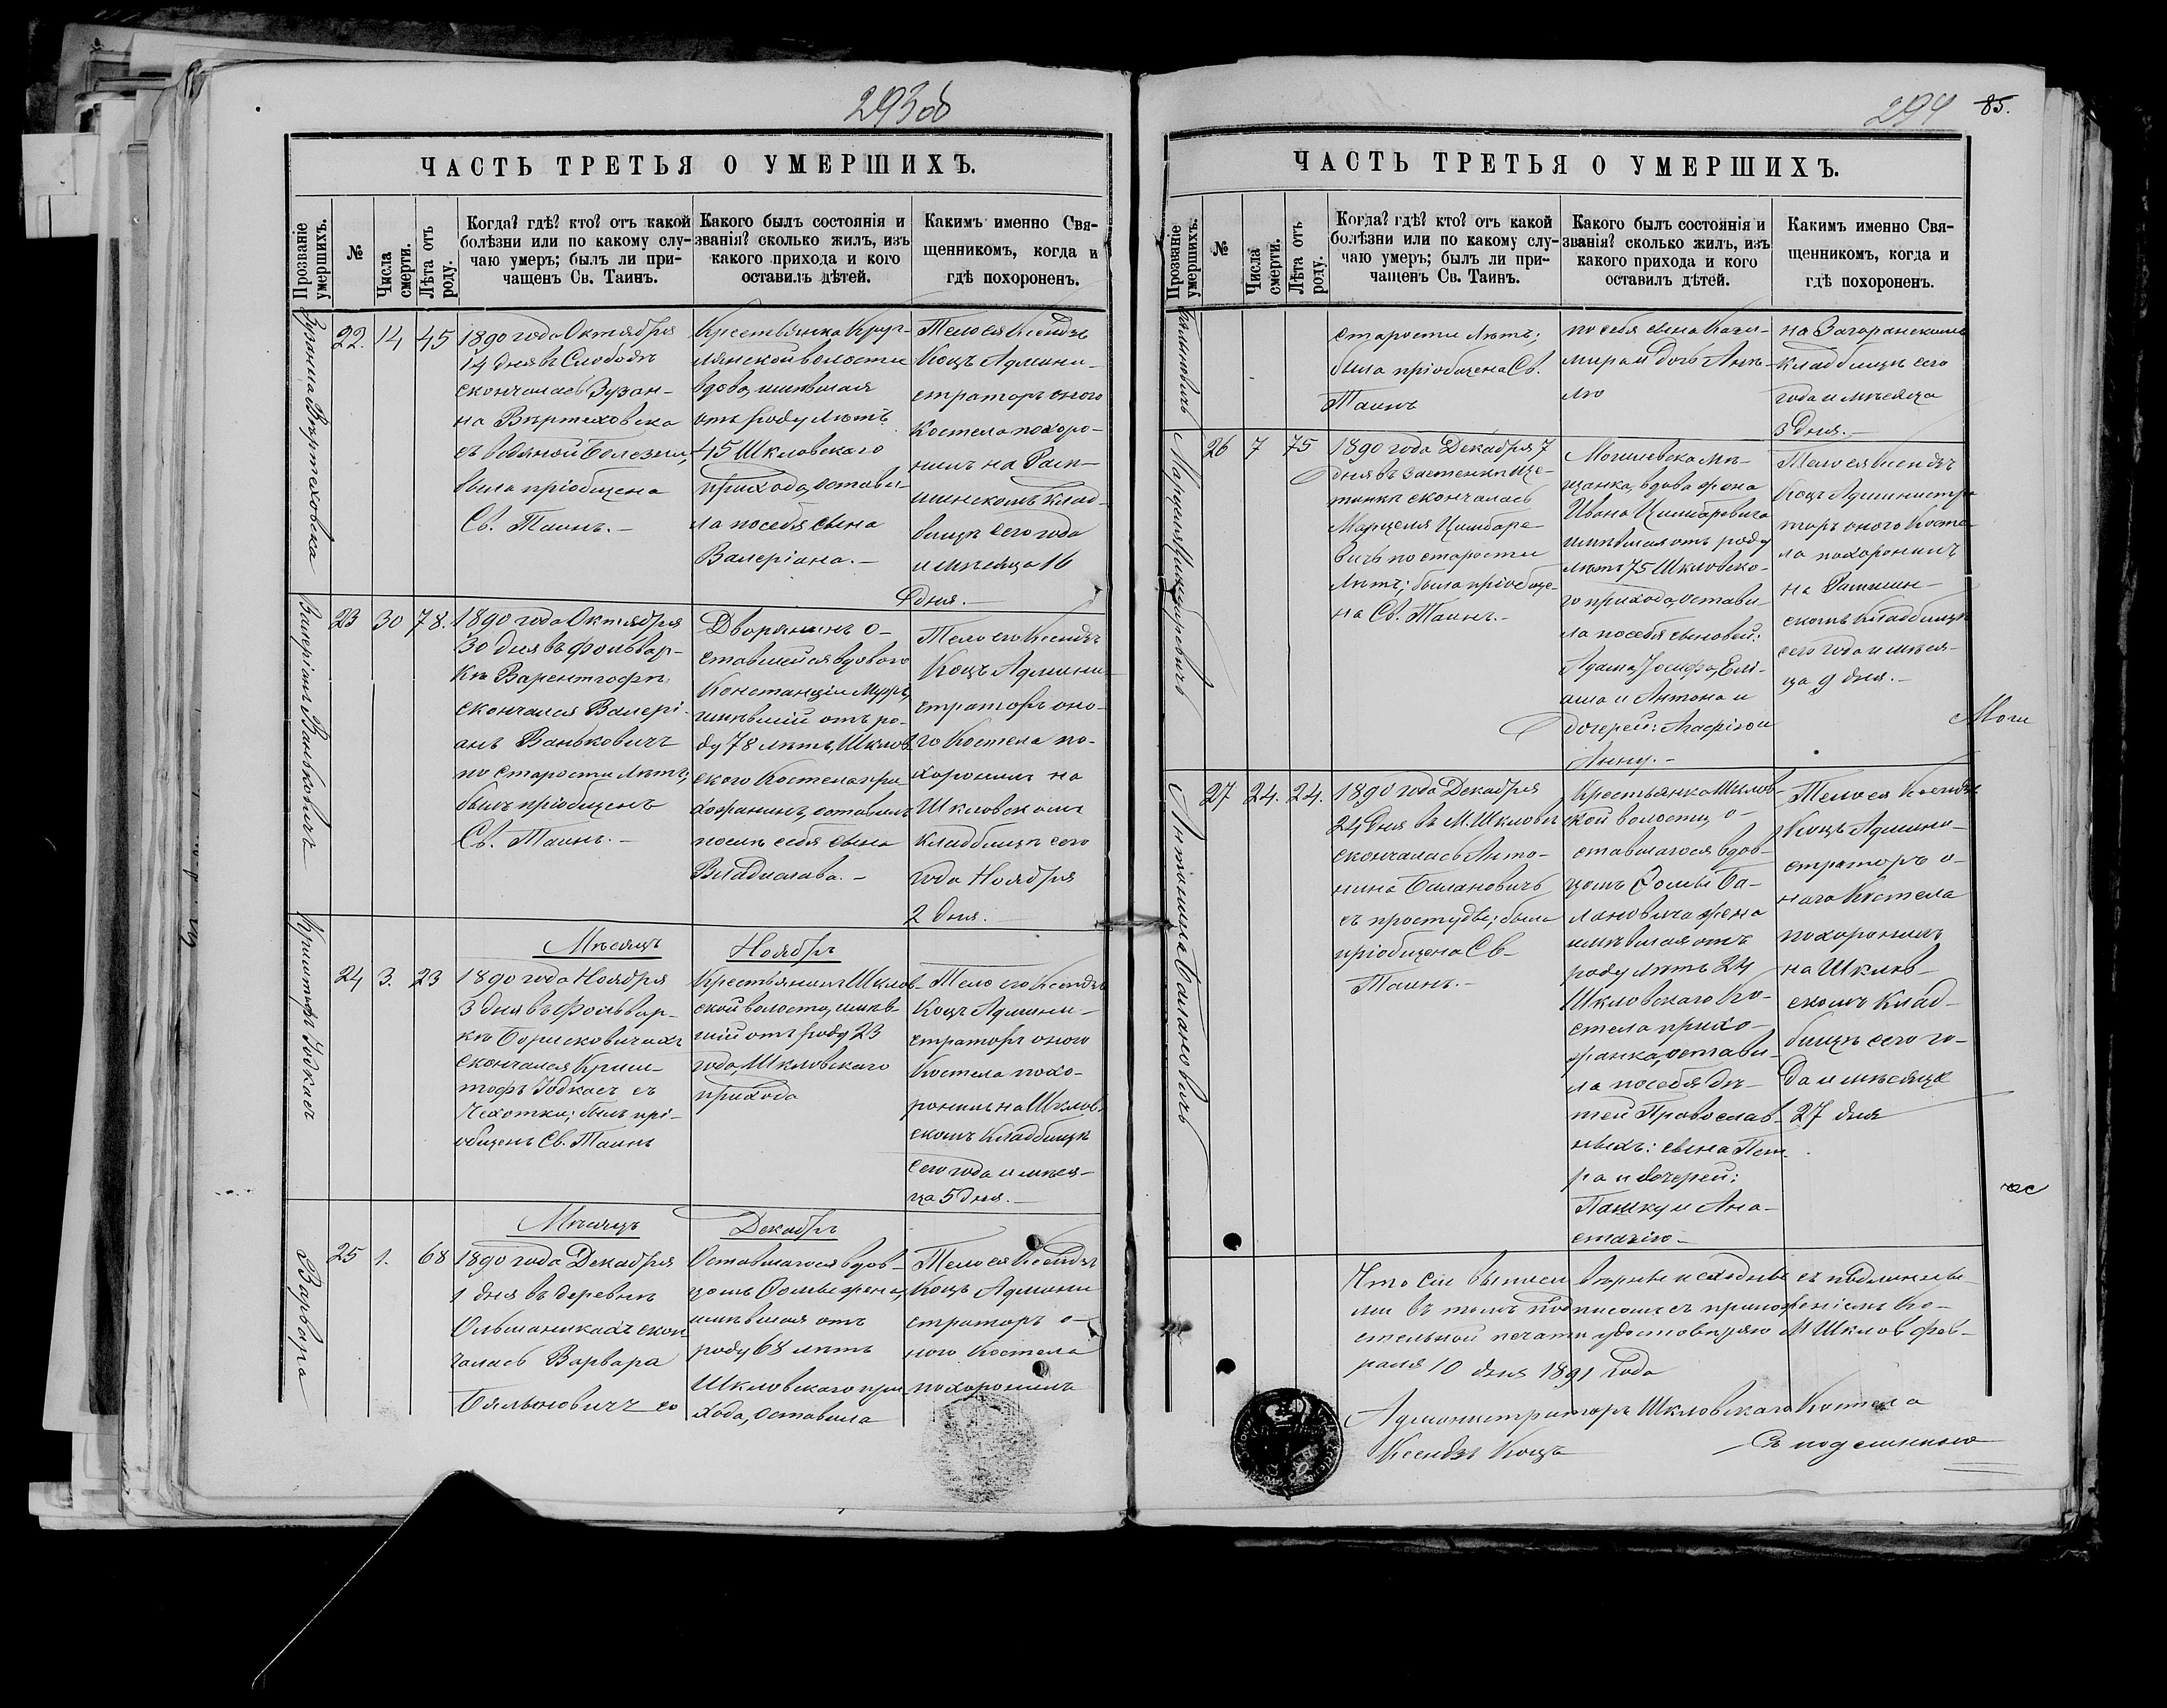 293об
ЧАСТЬ ТРЕТЬЯ О УМЕРШИХЪ.
Прозваніе умершихъ.
№
Числа смерти.
Лѣта отъ роду.
Когда? гдѣ? кто? отъ какой
болѣзни или по какому слу-
чаю умеръ; былъ ли при-
чащенъ Св. Таинъ.
Какого былъ состоянія и
званія? сколько жилъ, изъ
какого прихода и кого
оставилъ дѣтей.
Какимъ именно Свя-
щенникомъ, когда и
гдѣ похороненъ.
Зузанна Вѣртеховска
22. 14 45
1890 года Октября
14 дня въ Слободѣ
скончалась Зузан-
на Вѣртеховска
съ водяной болезни,
была пріобщена
Св. Таинъ.-
Крестьянка Круг-
лянской волости
вдова, имѣвшая
отъ роду лѣтъ
45 Шкловскаго
прихода, остави-
ла по себѣ сына
Валеріана.-
Тело ея Ксендзъ
Коцъ Админи-
страторъ оного
Костела похоро-
нилъ на
кладбищѣ сего года
и мѣсяца 16
дня.-
Валеріанъ Ваньковичъ
23 30 78.
1890 года Октября
30 дня въ фольвар-
кѣ Варентгофѣ
скончался Валері-
анъ Ваньковичъ
по старости лѣтъ;
былъ пріобщенъ
Св. Таинъ.-
Дворянинъ о-
ставшейся вдовою
Констанціи мужъ,
имѣвшій отъ ро-
ду 78 лѣтъ, Шклов-
ского Костела при-
хожанинъ, оставилъ
после себя сына
Владислава.-
Тело его Ксендзъ
Коцъ Админи-
страторъ оно-
го Костела по-
хоронилъ на
Шкловскомъ
кладбищѣ сего
года Ноября
2 дня.
Мѣсяцъ Ноябрь
Криштофъ Юдкасъ
24 3. 23
1890 года Ноября
3 дня въ фольвар-
кѣ Борисковичахъ
скончался Криш-
тофъ Юдкасъ съ
чехотки; былъ прі-
общенъ Св. Таинъ
Крестьянинъ Шклов-
ской волости, имѣв-
шій отъ роду 23
года, Шкловскаго
прихода
Тело его Ксендзъ
Коцъ Админи-
страторъ оного
Костела похо-
ронилъ на Шклов-
скомъ кладбищѣ
сего года и мѣся-
ца 5 дня.-
Мѣсяцъ Декабрь
Варвара
25 1. 68
1890 года Декабря
1 дня въ деревнѣ
Ольшаникахъ скон-
чалась Варвара
Бяльновичъ со
Оставшагося вдов-
цомъ Фомы жена,
имѣвшая отъ
роду 68 лѣтъ
Шкловскаго при-
хода, оставила
Тело ея Ксендзъ
Коцъ Админи-
страторъ о-
ного Костела
похоронилъ
294 85.
ЧАСТЬ ТРЕТЬЯ О УМЕРШИХЪ.
Прозваніе умершихъ.
№
Числа смерти.
Лѣта отъ роду.
Когда? гдѣ? кто? отъ какой
болѣзни или по какому слу-
чаю умеръ; былъ ли при-
чащенъ Св. Таинъ.
Какого былъ состоянія и
званія? сколько жилъ, изъ
какого прихода и кого
оставилъ дѣтей.
Какимъ именно Свя-
щенникомъ, когда и
гдѣ похороненъ.
Бяльновичъ
старости лѣтъ;
была пріобщена Св.
Таинъ
по себѣ сына Кази-
мира и дочь Анѣ-
лю
на Загоранскомъ
кладбищѣ сего
года и мѣсяца
3 дня.-
Марцеля Цимбаревичъ
26 7 75
1890 года Декабря 7
дня въ застенки Ще-
тинки скончалась
Марцеля Цимбаре-
вичъ по старости
лѣтъ; была пріобще-
на Св. Таинъ.-
Могилевска мѣ-
щанка, вдова жена
Ивана Цимбаревича
имѣвшая отъ роду
лѣтъ 75 Шкловско-
го прихода, остави-
ла по себѣ сыновей:
Адама, Іосифа, Елі-
аша и Антона и
дочерей: Агафію и
Анну.-
Тело ея Ксендзъ
Коцъ Администра-
торъ оного Косте-
ла похоронилъ
на
скомъ кладбищѣ
сего года и мѣся-
ца 9 дня.-
Моги
Антонина Балановичъ
27 24. 24.
1890 года Декабря
24 дня въ М. Шкловѣ
скончалась Анто-
нина Балановичъ
съ простудѣ; была
пріобщена Св-
Таинъ.-
Крестьянка Шклов-
ской волости, о-
ставшагося вдов-
цомъ Фомы Ба-
лановича жена
имѣвшая отъ
роду лѣтъ 24
Шкловскаго Ко-
стела прихо-
жанка, остави-
ла по себѣ дѣ-
тей Православ-
ныхъ: сына Пет-
ра и дочерей:
Пашку и Ана-
стасію-
Тело ея Ксендзъ
Коцъ Админи-
страторъ о-
наго Костела
похоронилъ
на Шклов-
скомъ клад-
бищѣ сего го-
да и мѣсяца
27 дня
Что сіи выписи вѣрны и сходны съ подлинны-
ми въ томъ подписомъ съ приложеніемъ Ко-
стельной печати удостовѣряю М Шкловъ фев-
раля 10 дня 1891 года
Администраторъ Шкловскаго Костела
Ксендзъ Коцъ
Съ подлинною